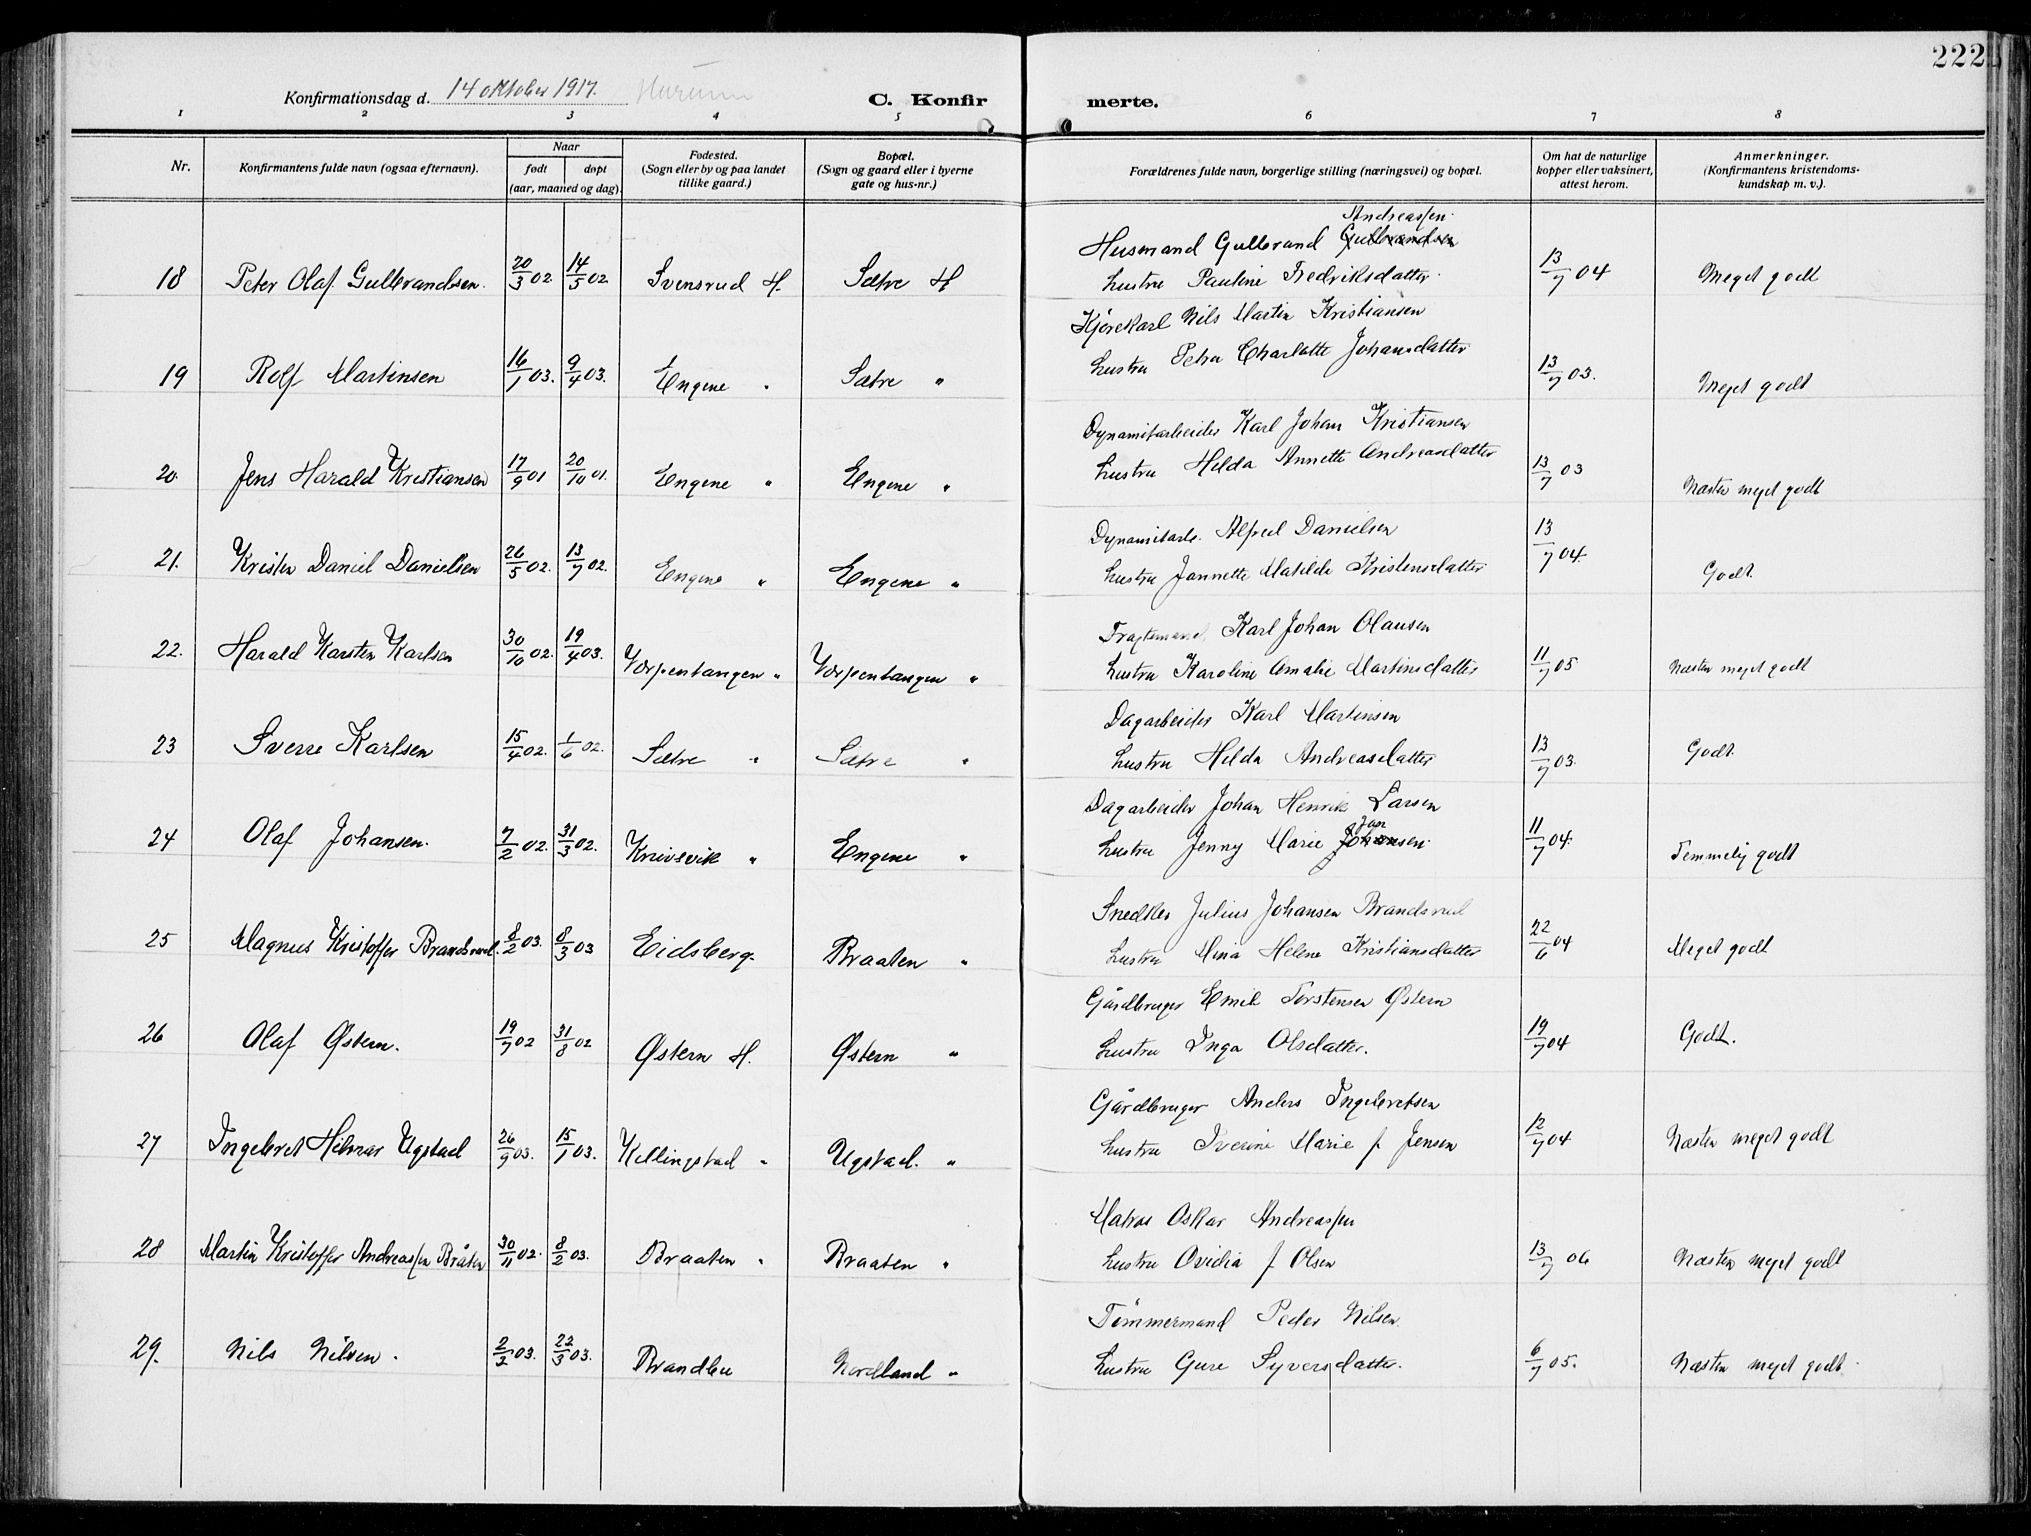 222
Konfirmationsdag d. 14 oktober 1917. Hurum
C. Konfirmerte.
1 2 3 4 5 6 7 8
Nr.
Konfirmantens fulde navn (ogsaa efternavn).
Naar
født døpt
(aar, maaned og dag).
Fødested.
(Sogn eller by og paa landet
tillike gaard.)
Bopæl.
(Sogn og gaard eller i byerne
gate og hus-nr.)
Forældrenes fulde navn, borgerlige stilling (næringsvei) og bopæl.
Om hat de naturlige
kopper eller vaksinert,
attest herom.
Anmerkninger.
(Konfirmantens kristendoms-
kundskap m. v.).
Andreassen.
Husmand Gullbrand Gullbrandsen
18 Peter Olaf Gullbrandsen. 20/3 02. 14/5 02 Svensrud H. Sætre H hustru Pauline Fredriksdatter. 13/7 04 Meget godt
Kjørekarl Nils Martin Kristiansen
19 Rolf Martinsen 16/1 03. 9/4 03. Engene " Sætre " hustru Petra Charlotte Johansdatter 13/7 03. Meget godt
Dynamitarbeider Karl Johan Kristiansen
20. Jens Harald Kristiansen 17/9 01 20/10 01. Engene " Engene " hustru Helda Annette Andreasdatter 13/7 03 Næsten meget godt
Dynamitarb. Alfred Danielsen
21. Kristen Daniel Danielsen 26/5 02. 13/7 02. Engene " Engene " hustru Jannette Matilde Kristensdatter 13/7 04. Godt.
Fragtemand Karl Johan Olausen
22. Harald Karsten Karlsen 30/10 02. 19/4 03. Verpentangen " Verpentangen " hustru Karoline Amalie Martinsdatter 11/7 05 Næsten meget godt
Dagarbeider Karl Martinsen
23 Sverre Karlsen 15/4 02. 1/6 02. Sætre " Sætre " hustru Helda Andreasdatter 13/7 03. Godt.
Dagarbeider Johan Henrik Larsen
24 Olaf Johansen. 7/2 02. 31/3 02. Knivsvik " Engene " hustru Jenny Marie Johansen. 11/7 04. Temmelig godt
Snedker Julius Johansen Brandsrud
25 Magnus Kristoffer Brandsrud. 8/2 03. 8/3 03 Eidsberg. Braaten " hustru Mina Helene Kristiansdatter 22/6 04 Meget godt
Gårdbruger Emil Torstensen Østern
26 Olaf Østern. 19/7 02 31/8 02 Østern H. Østern " hustru Inga Olsdatter. 19/7 04 Godt.
Gårdbruger Anders Ingebretsen
27 Ingebret Helmar Ugstad 26/9 03. 15/1 03. Kellingstad " Ugstad. " hustru Iverine Marie f Jensen 12/7 04 Næsten meget godt
Matros Oskar Andreassen
28 Martin Kristoffer Andreassen Bråten 30/11 02. 8/2 03. Braaten " Braaten " hustru Ovidia f Olsen 13/7 06 Næsten meget godt
Tømmermand Peder Nilsen.
29. Nils Nilsen. 2/2 03. 22/3 03. Brandbu Nordland " hustru Gure Syversdatter. 6/7 05. Næsten meget godt.